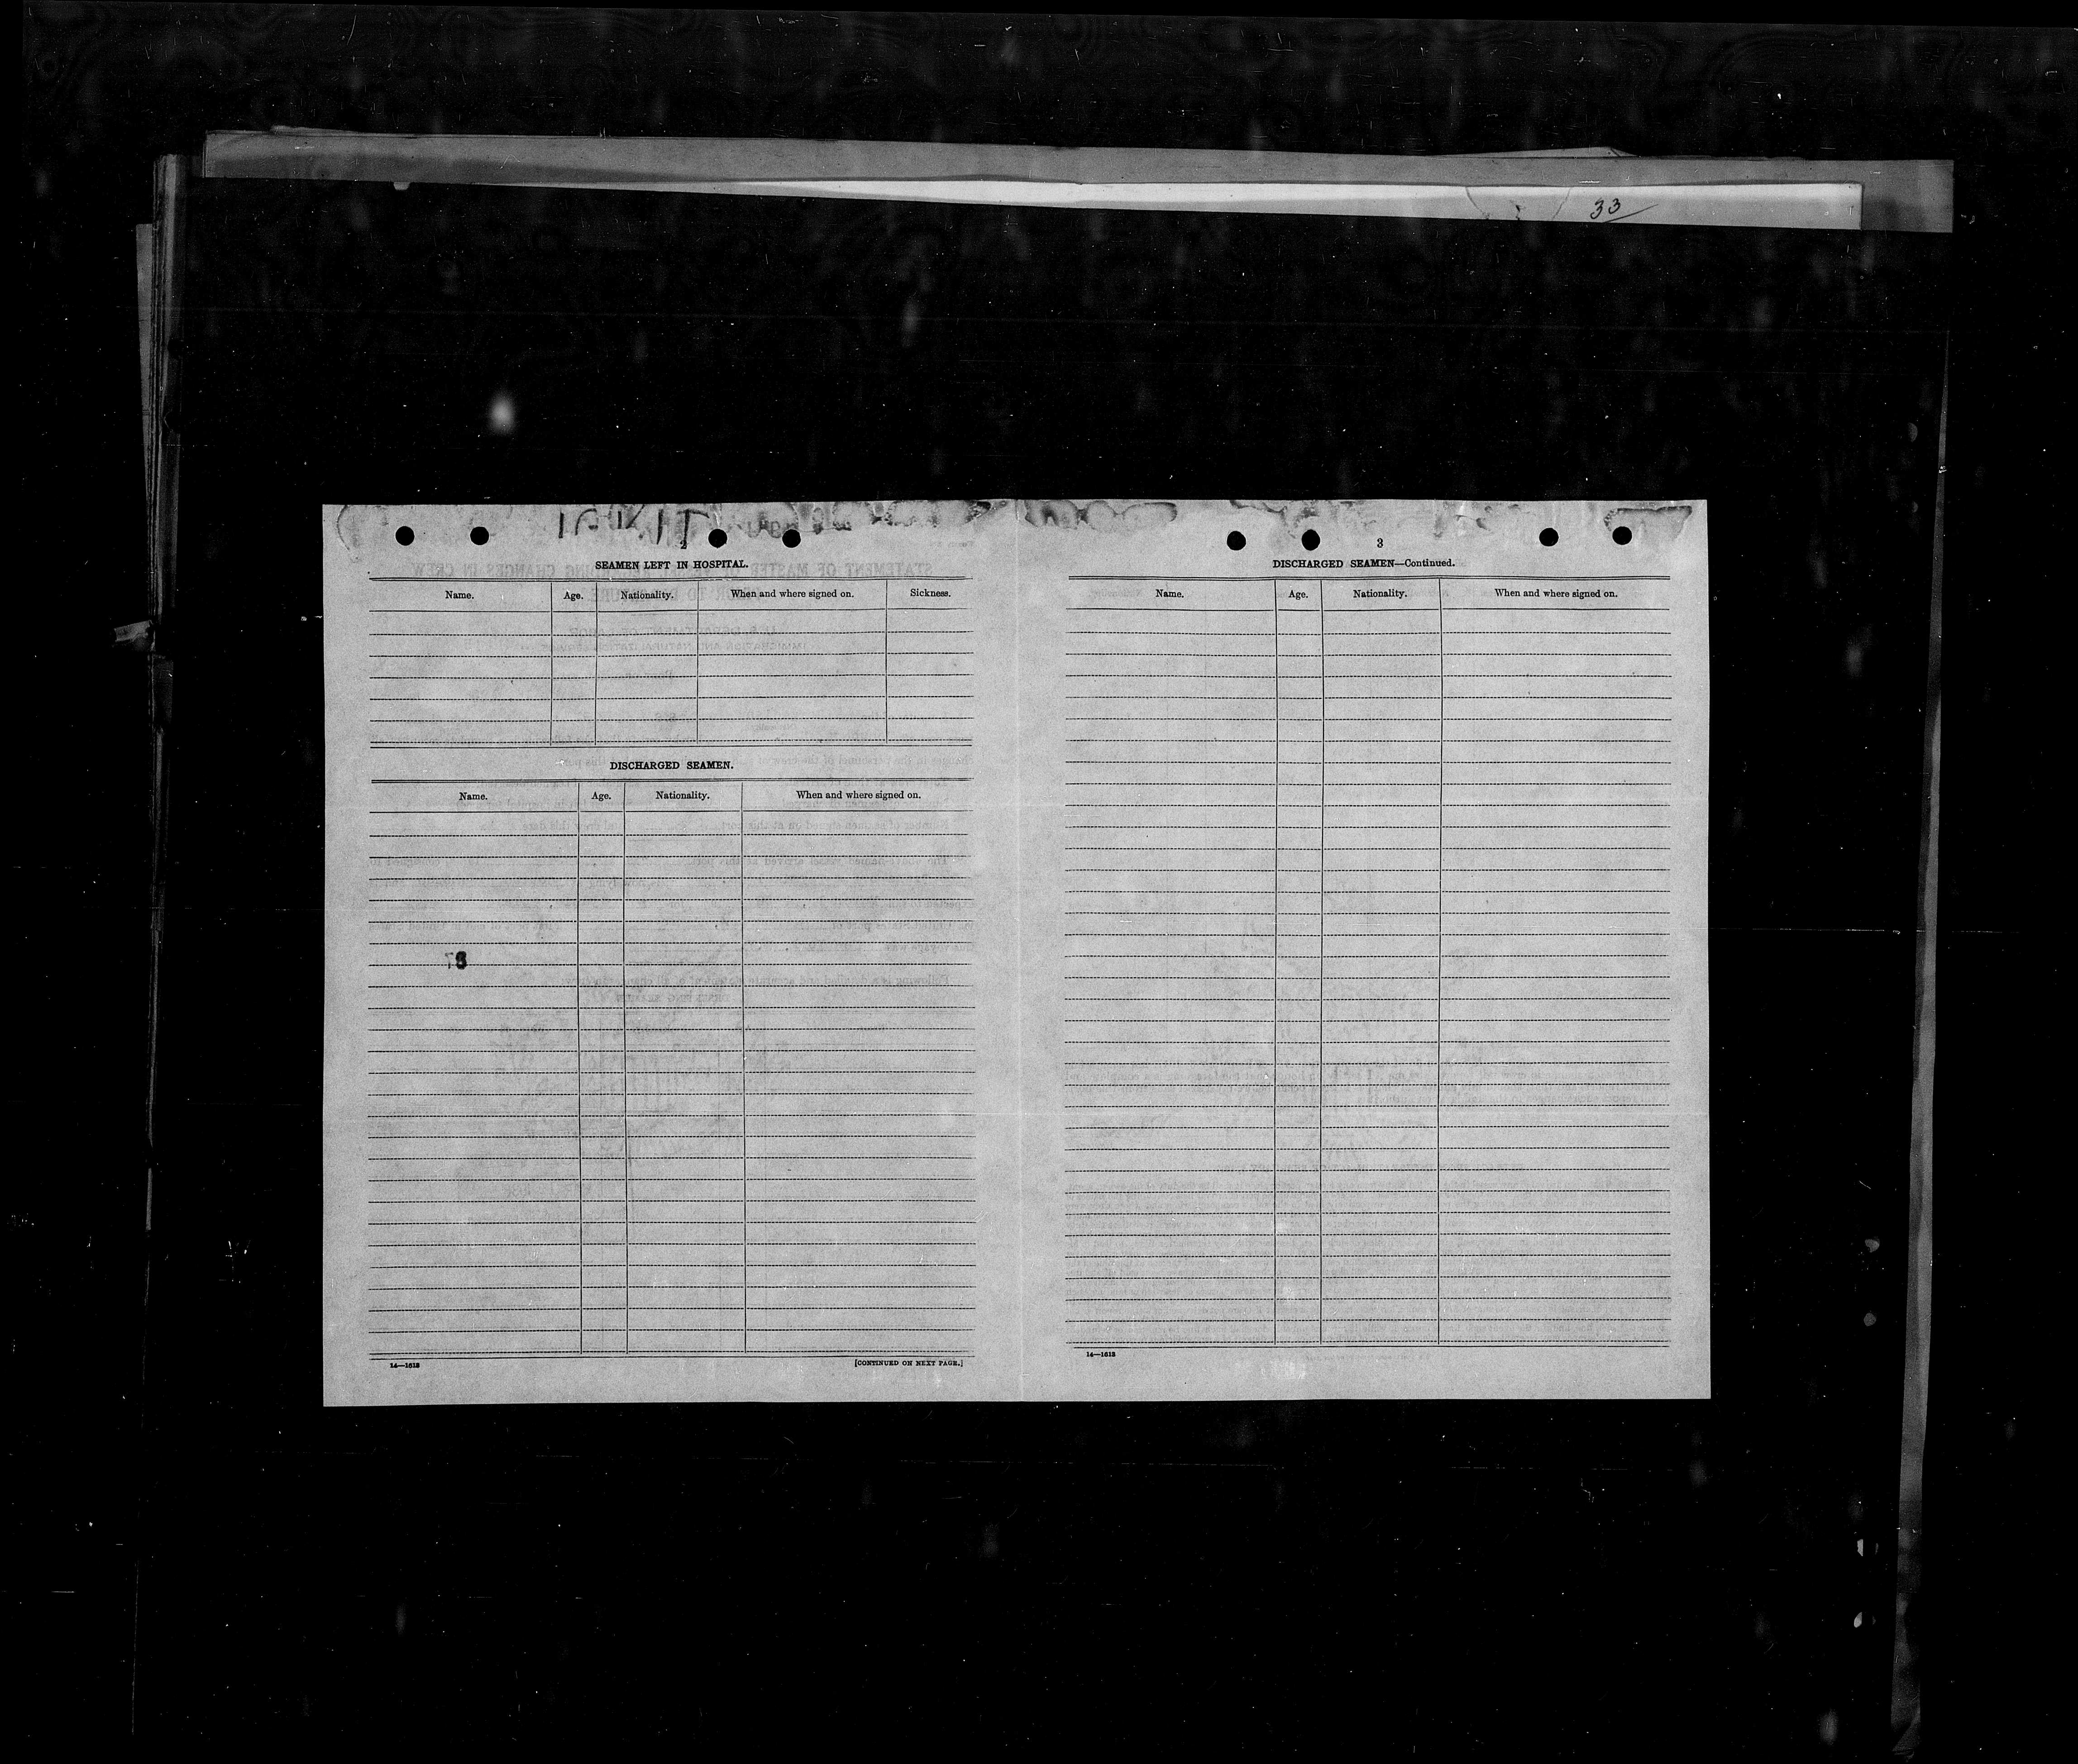 33
2
SEAMEN LEFT IN HOSPITAL.
Name. Age. Nationality. When and where signed on. Sickness.
DISCHARGED SEAMEN.
Name. Age. Nationality. When and where signed on.
14—1618 [CONTINUED ON NEXT PAGE.]
3
DISCHARGED SEAMEN—Continued.
Name. Age. Nationality. When and where signed on.
14—1618